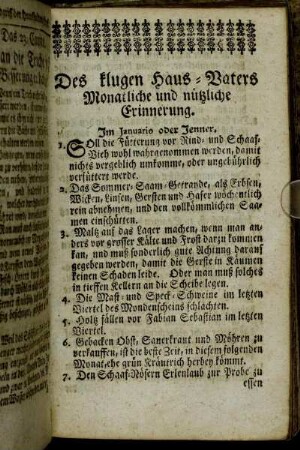 Des klugen Haus-Vaters
Monatliche und nützliche
Erinnerung.
Im Januario oder Jenner.
1. Soll die Fütterung vor Rind- und Schaaf-
Vieh wohl wahrgenommen werden, damit
nichts vergeblich umkomme, oder ungebührlich
verfüttert werde.
2. Das Sommer-Saam-Getrayde, als Erbsen,
Wicken, Linsen, Gersten und Hafer wöchentlich
rein abnehmen, und den vollkömmlichen Saa-
men einschütten.
3. Maltz auf das Lager machen, wenn man an-
ders vor grosser Kälte und Frost darzu kommen
kan, und muß sonderlich gute Achtung darauf
gegeben werden, damit die Gerste in Käumen
keinen Schaden leide. Oder man muß solches
in tieffen Kellern an die Scheibe legen.
4. Die Mast- und Speck-Schweine im letzten
Viertel des Mondenscheins schlachten.
5. Holtz fällen vor Fabian Sebastian im letzten
Viertel.
6. Gebacken Obst, Sauerkraut und Möhren zu
verkauffen, ist die beste Zeit, in diesem folgenden
Monat, ehe grün Kräutrich herbey kömmt.
7. Den Schaaf-Nösern Erlenlaub zur Probe zu
essen